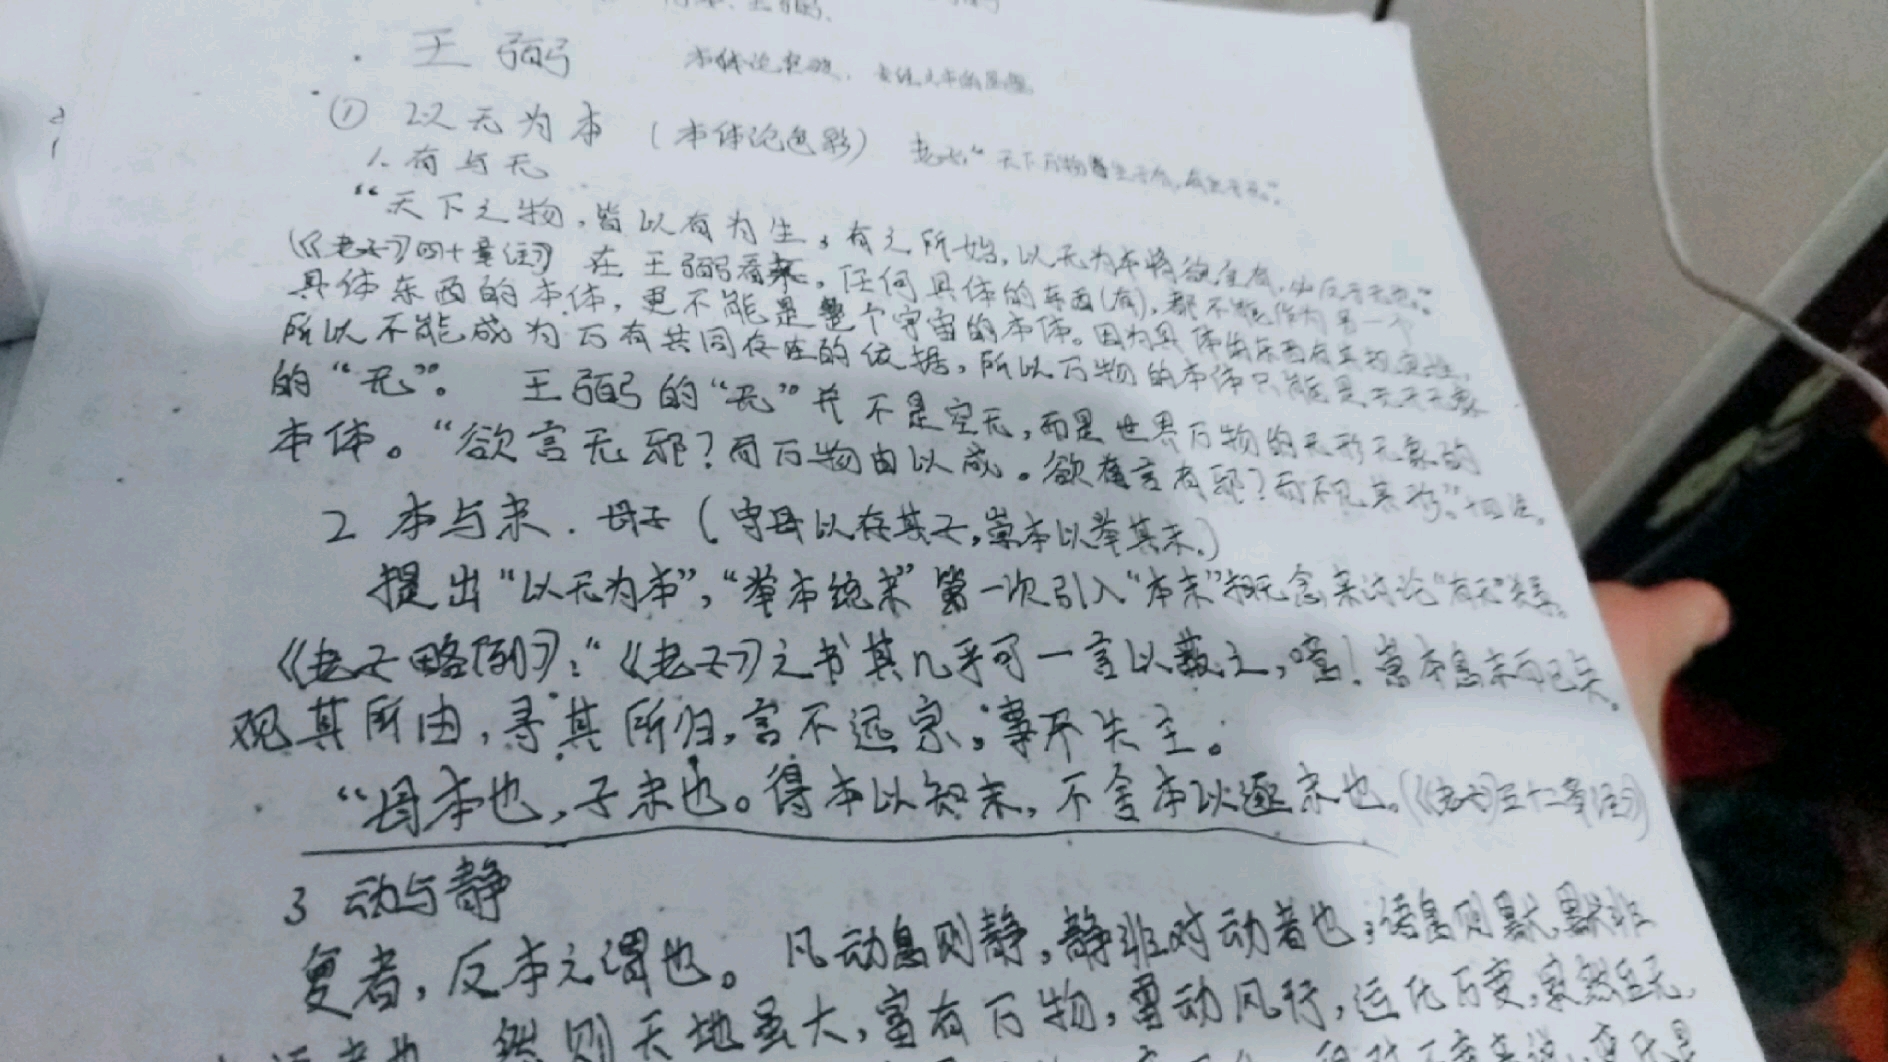 王弼
① 以无为本 (本体论色彩) 老子:“天下万物生于有,有生于无。”
1. 有与无
“天下之物,皆以有为生,有之所始,以无为本将欲全有,必反于无也。”
(《老子》四十章注》) 在王弼看来,任何具体的东西(有),都不能作为另一个
具体东西的本体,更不能是整个宇宙的本体。因为具体的东西有其规定性,
所以不能成为万有共同存在的依据,所以万物的本体只能是无形无象
的“无”。 王弼的“无”并不是空无,而是世界万物的无形无象的
本体。“欲言无邪?而万物由以成。欲言有邪?而不见其形。”十四注。
2 本与末. 母子 (守母以存其子,崇本以举其末.)
提出“以无为本”,“举本统末”第一次引入“本末”概念来讨论“有无”关系。
《老子略例》:“《老子》之书其几乎可一言以蔽之,噫!崇本息末而已矣。
观其所由,寻其所归,言不远宗,事不失主。
“母本也,子末也。得本以知末,不舍本以逐末也。(《老子》五十二章注》)
3 动与静
复者,反本之谓也。 凡动息则静,静非对动者也;语息则默,默非
然则天地虽大,富有万物,雷动风行,运化万变,寂然至无,